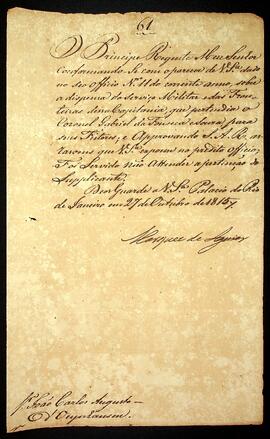 61
O Principe Regente Meu Senhor
Conformando-Se com o parecer de V. Sª dado
no seo Officio Nº 11 do corrente anno, sobre
a dispensa do serviço Militar e das Fron
teiras, que pertendia o
Coronel Gabriel da Fonseca e Souza para
seus Feitores; e Approvando S. A. R. as
razoens que V. Sª expoem no predito Officio;
Foi Servido não Attender a pertenção do
Supplicante.
Deos Guarde a V. Sª Palacio do Rio
de Janeiro em 27 de Outubro de 1815
Marquez de Aguiar
Sr. João Carlos Augusto
d'Oeynhausen.